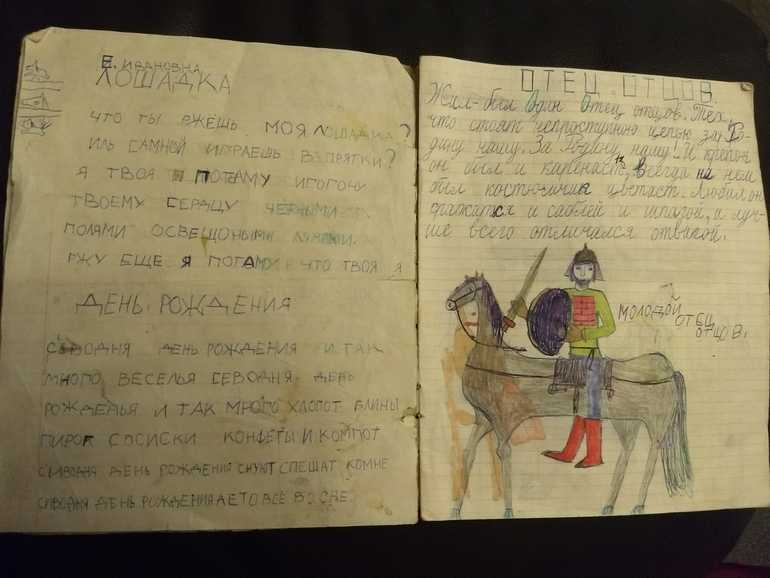 Е. ИВАНОВНА
ЛОШАДКА
ЧТО ТЫ РЖЕШЬ МОЯ ЛОШАДКА?
ИЛЬ САМНОЙ ИГРАЕШЬ В ПРЯТКИ?
Я ТВОЯ И ПОТАМУ ИГОГОЧУ
ТВОЕМУ СЕРДЦУ ЧЕРНЫМИ
ПОЛЯМИ ОСВЕЩОНЫМИ
РЖУ ЕЩЕ Я ПОТАМУ ЧТО ТВОЯ Я
ДЕНЬ РОЖДЕНИЯ
СЕВОДНЯ ДЕНЬ РОЖДЕНИЯ И ТАК
МНОГО ВЕСЕЛЬЯ СЕВОДНЯ ДЕНЬ
РОЖДЕНЬЯ И ТАК МНОГО ХЛОПОТ БЛИНЫ
ПИРОГ СОСИСКИ КОНФЕТЫ И КОМПОТ
СИВОДНЯ ДЕНЬ РОЖДЕНИЯ СНУЮТ СПЕШАТ КОМНЕ
СИВОДНЯ ДЕНЬ РОЖДЕНИЯ АЕТО ВСЁ ВО СНЕ
ОТЕЦ ОТЦОВ.
Жил-был Один Отец отцов. Тех,
что стоят непроступною цепью за Ро-
дину нашу. За Родину нашу! И крепок
он был и каренаст, Всегда на нем
был костюмчик цветаст. Любил он
сражатся и саблей и шпагой, а луч-
ше всего отличался отвагой.
МОЛОДОЙ
ОТЕЦ
ОТЦОВ.